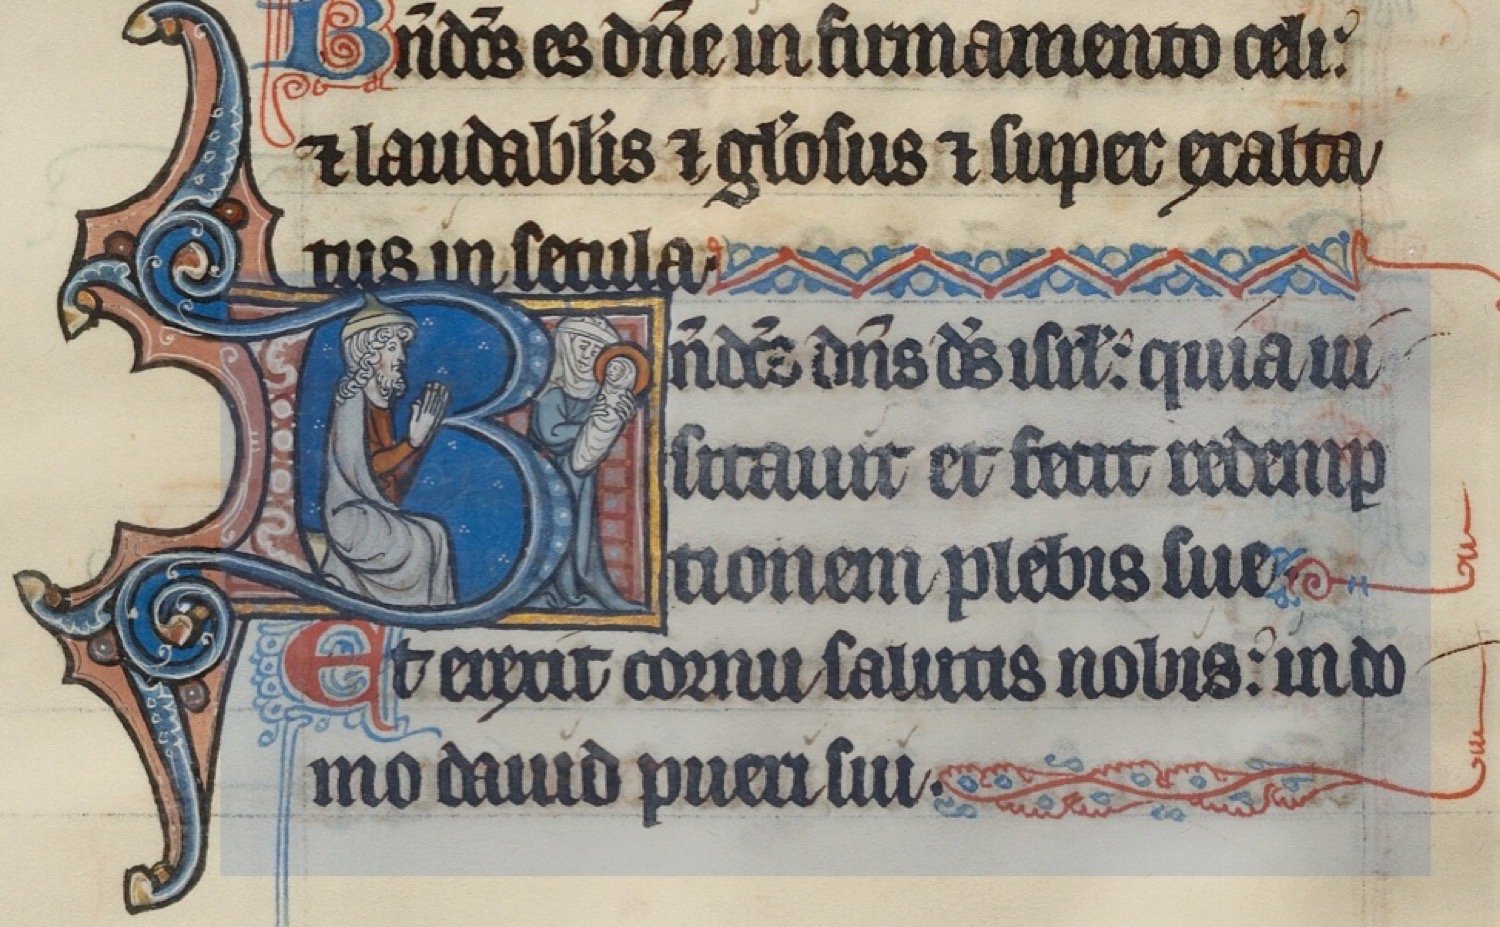 Bn̄dc̄s es dn̄e in firmamento celi:
⁊ laudabl'is ⁊ gl'osus ⁊ super exalta
tus in secula.
Bn̄dc̄s dn̄s ds̄ isrl̄: quia ui
sitauit et fecit redemp
tionem plebis sue
Et erexit cornu salutis nobis: in do
mo dauid pueri sui.